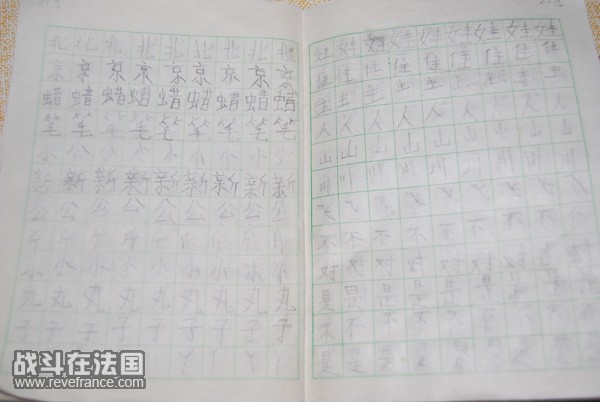 北 北 北 北 北 北 北 北 北
京 京 京 京 京 京 京 京 京
蜡 蜡 蜡 蜡 蜡 蜡 蜡 蜡 蜡
笔 笔 笔 笔 笔 笔 笔 笔 笔
小 公 小 小 小 小
新 新 新 新 新 新 新 新 新
公 公 公 公 公 公 公 公 公
斤 斤 斤 斤 斤 斤 斤 斤 斤
小 小 小 小 小 小 小 小 小
丸 丸 丸 丸 丸 丸 丸 丸 丸
子 子 子 子 子 子 子 子 子
丫 丫 丫 丫
姓 姓 姓 姓 姓 姓 姓 姓 姓
住 住 住 住 住 住 住 住 住
主 主 主 主 主 主 主 主 主
人 人 人 人 人 人 人 人 人
山 山 山 山 山 山 山 山 山
川 川 川 川 川 川 川 川 川
飞 飞 飞 飞 飞 飞 飞 飞 飞
不 不 不 不 不 不 不 不 不
对 对 对 对 对 对 对 对 对
是 是 是 是 是 是 是 是 是
不 不 不 不 不 不 不 不 不
是 是 是 是 是 是 是 是 是
战斗在法国
www.revefrance.com